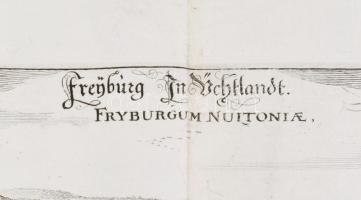 Freÿburg In Üchtlandt.
FRYBURGUM NUITONIÆ.